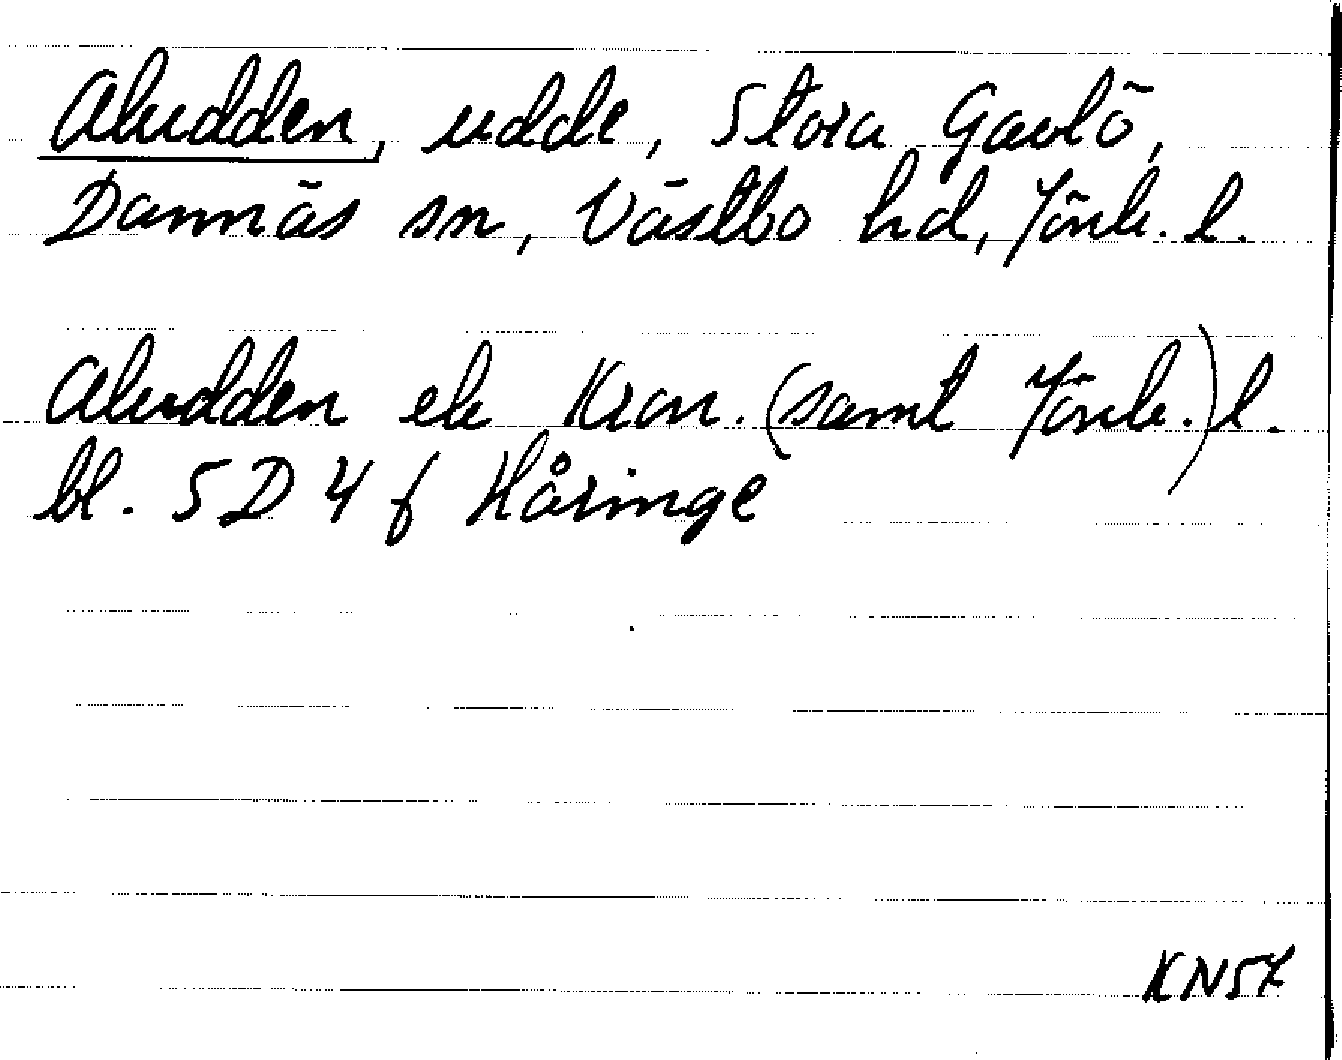 Aludden, udde, Stora Gavlö,
Dannäs sn, Västbo hd, Jönk. l.
Aludden ek Kron. (samt Jönk.) l.
bl. 5D 4 f Håringe
KN57